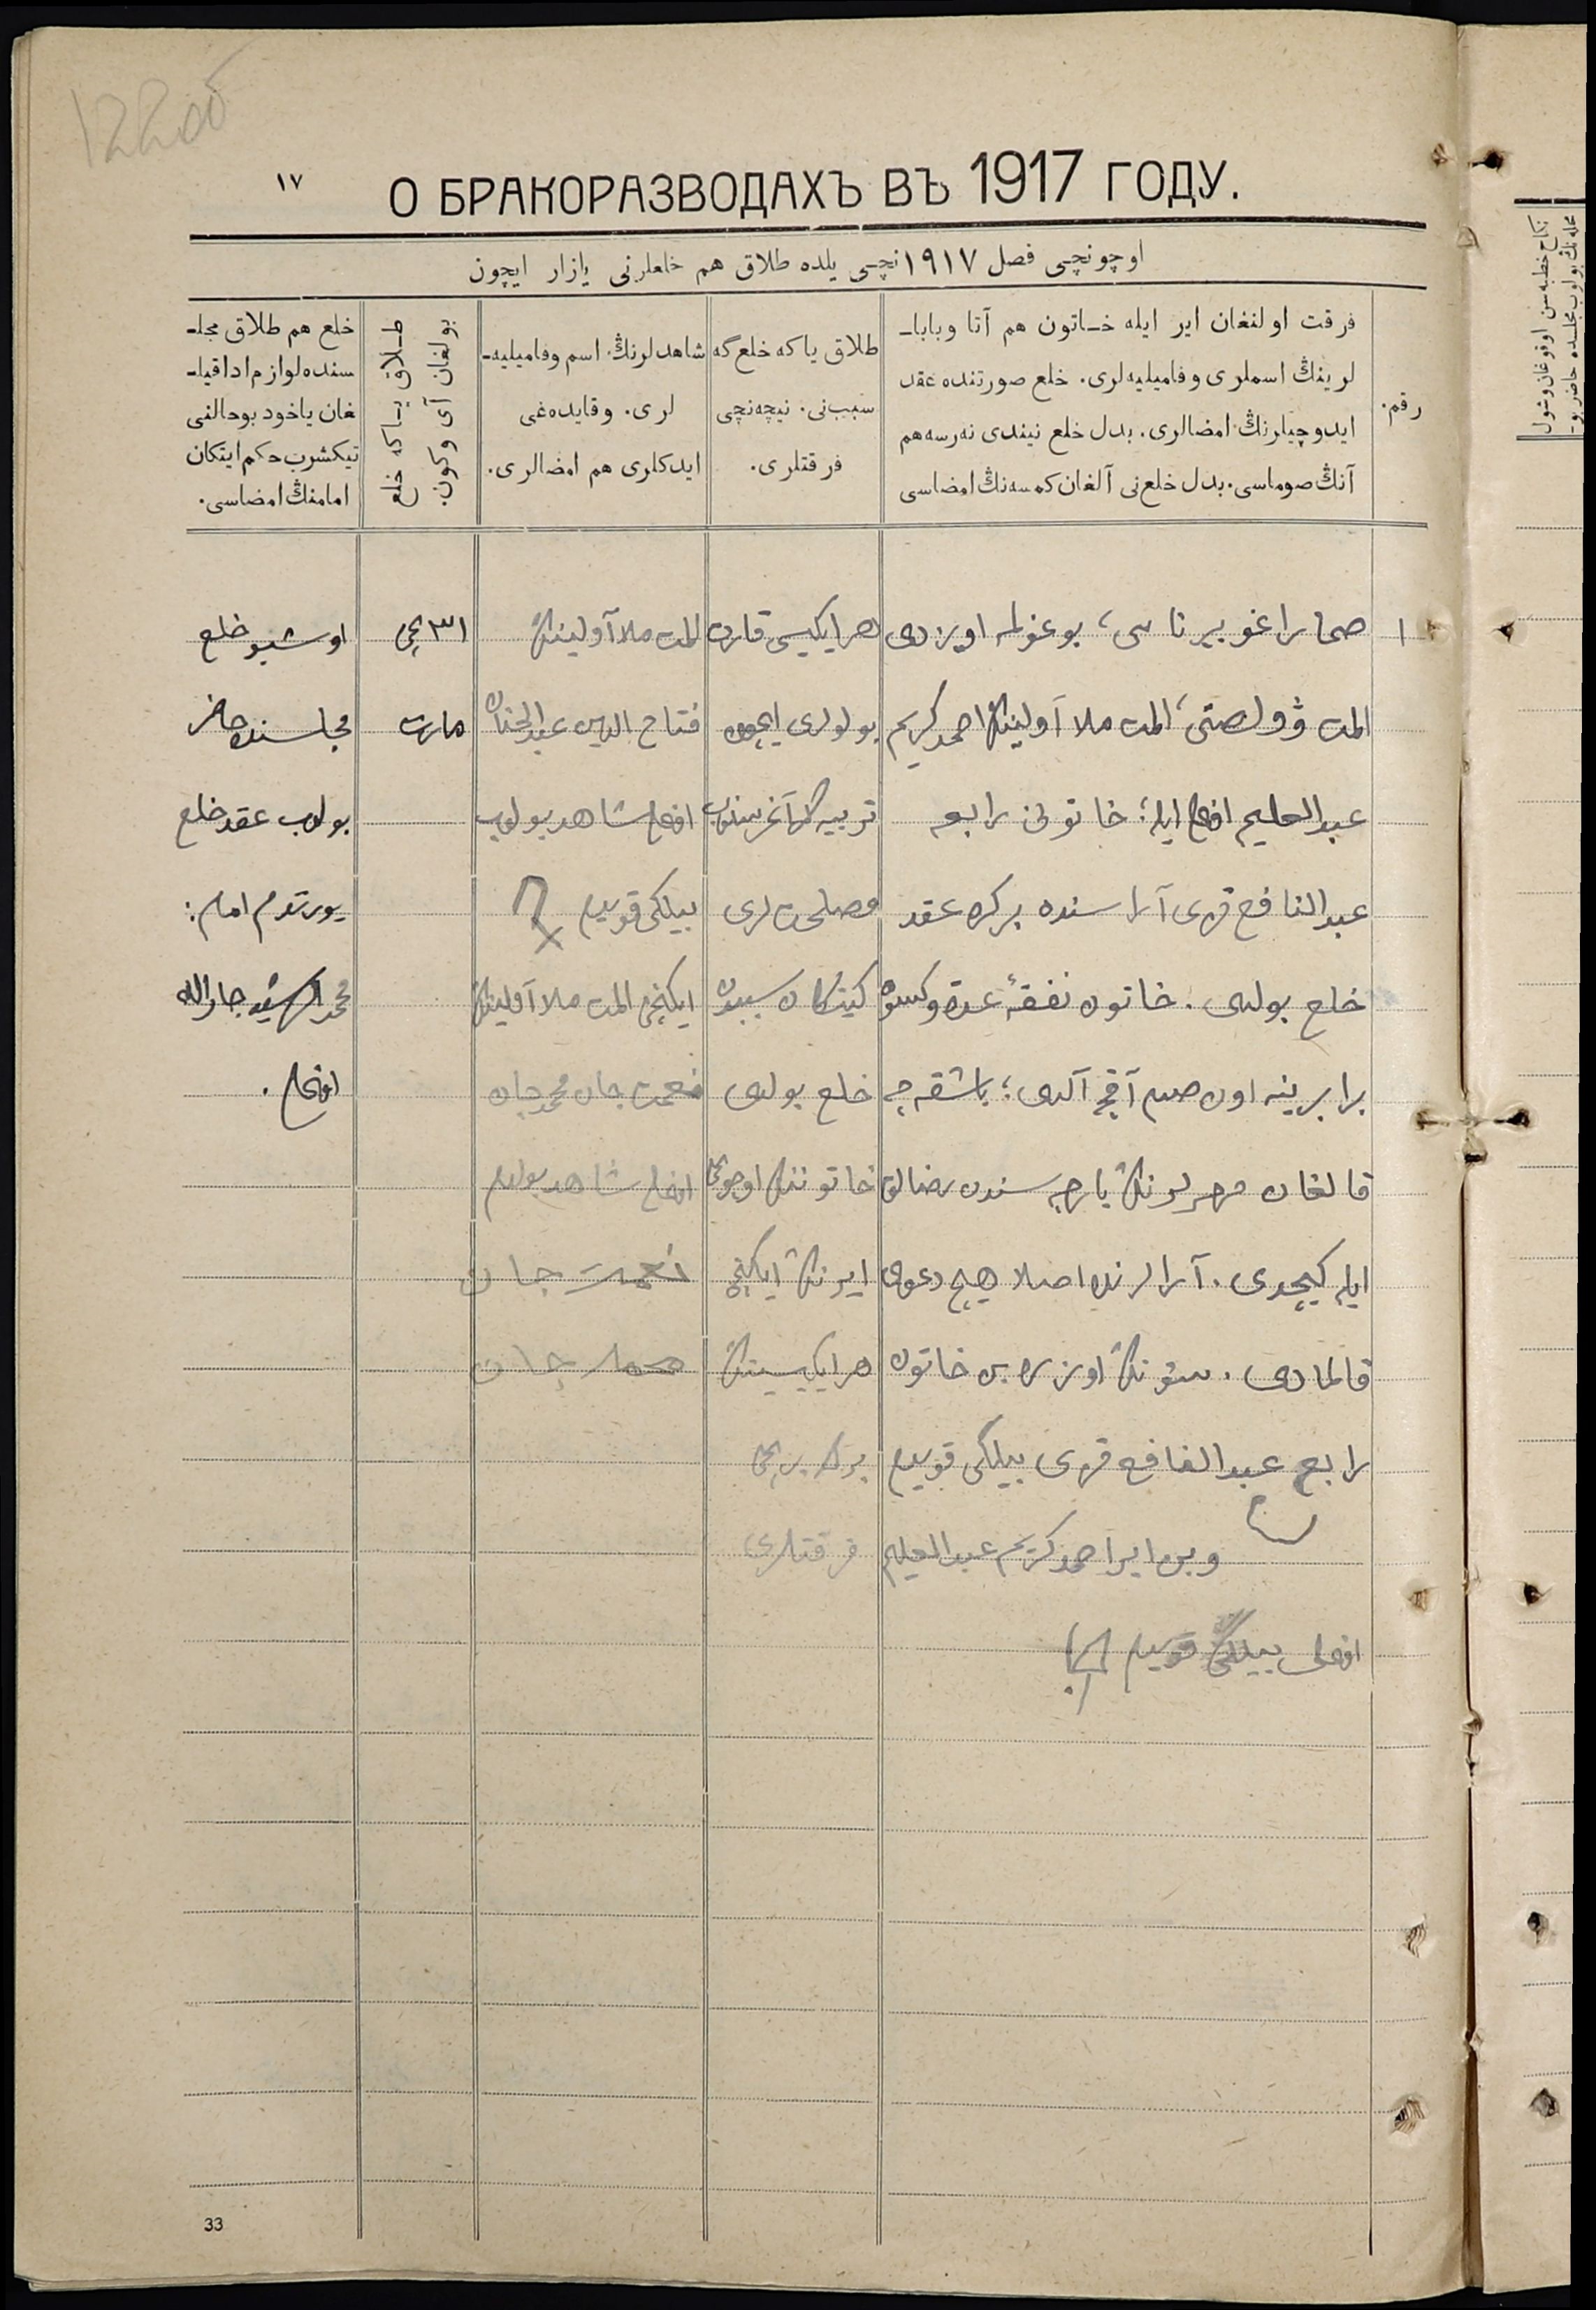 122об
١٧
О БРАКОРАЗВОДАХЪ ВЪ 1917 ГОДУ.
اوچونچی فصل ١٩١٧ نچی یلده طلاق هم خلعلرنی یازار ایچون
رقم.
فرقت اولنغان ایر ایله خاتون هم آتا وبابا-
لرینڭ اسملری وفامیلیه‌لری. خلع صورتنده عقد
ایدوچیلرنڭ امضالری. بدل خلع نیندی نه‌رسه هم
آنڭ صوماسی. بدل خلع‌نی آلغان کمسه‌نڭ امضاسی
طلاق یاکه خلع گه
سببنی. نیچه‌نچی
فرقتلری.
شاهدلرنڭ اسم وفامیلیه-
لری. وقایده‌غی
ایدکلری هم امضالری.
طلاق یاکه خلع
بولغان آی وکون.
خلع هم طلاق مجلـ
سنده لوازم ادا قیلـ
غان یاخود بو حالنی
تیکشرب حکم ایتکان
امامنڭ امضاسی.
١
صمارا غوبیرناسی، بوغولمه اویزدی
المت وولصتی، المت ملا آولینڭ احمدکریم
عبدالعلیم اوغلی ایله؛ خاتونی رابعه
عبدالنافع قزی آراسنده برگه عقد
خلع بولدی. خاتون نفقۀ عدة وکسوه
برابرینه اون صوم آقچه آلدی؛ باشقه چه
قالغان مهرلرنڭ بارچه سندن رضالق
ایله کیچدی. آرالرنده اصلا هیچ دعوی
قالمادی. شونڭ اوزره بن خاتون
رابعه عبدالنافع قزی بیلگی قویدم
وبن ایر احمدکریم عبدالعلیم
اوغلی بیلگی قویدم
هر ایکیسی قارت
بولولری ایچون
تربیه
مصلحت لری
کیتکان سببدن
خلع بولدی
خاتوننڭ اوچونچی
ایرنڭ ایکنچی
هر ایکیسینڭ
برگه برنچی
فرقتلری
المت ملا آولینڭ
فتاح الدین عبدالحنان
اوغلی شاهد بولوب
بیلگی قویدم
ایکنچی المت ملا آولینڭ
نعمت جان محمدجان
اوغلی شاهد بولدم
نعمت جان
محمدجان
٣١ نچی
مارت
اوشبو خلع
مجلسنده حاضر
بولوب عقد خلع
یورتدم امام:
محمد الرشید جارالله
اوغلی.
33
نکاح خطبه سن اوقوغان وشول